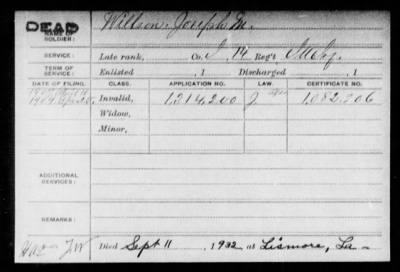 DEAD
NAME OF SOLDIER:
Willson, Joseph M.
SERVICE:
Late rank, Co. I, 14 Reg't
TERM OF SERVICE:
Enlisted , 1 . Discharged , 1 .
DATE OF FILING. CLASS. APPLICATION NO. LAW. CERTIFICATE NO.
Invalid, 1,314,200 1,082,206
Widow,
Minor,
ADDITIONAL SERVICES:
REMARKS:
Died Sept 11, 1932 at Lismore, La